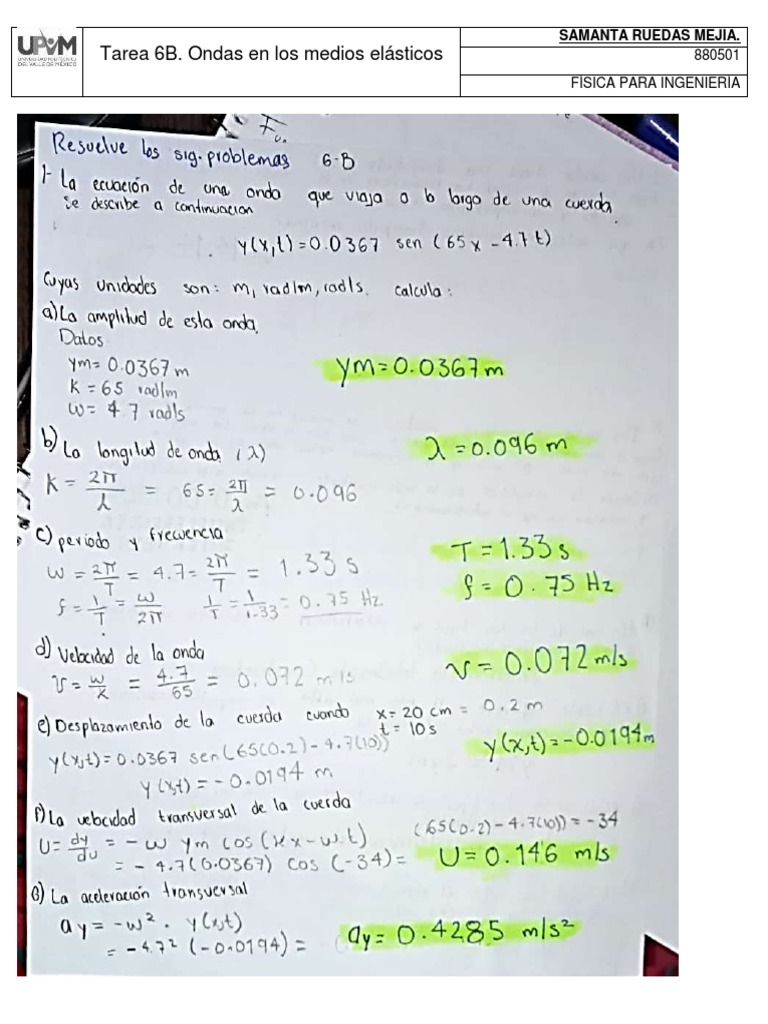 UPVM
UNIVERSIDAD POLITÉCNICA
DEL VALLE DE MÉXICO
Tarea 6B. Ondas en los medios elásticos
SAMANTA RUEDAS MEJIA.
880501
FISICA PARA INGENIERIA
Resuelve los sig. problemas 6-B
1- La ecuación de una onda que viaja a lo largo de una cuerda
se describe a continuacion
y(x,t)=0.0367 sen (65x-4.7t)
Cuyas unidades son: m, rad/m, rad/s. calcula:
a) La amplitud de esta onda.
Datos
ym=0.0367 m
ym=0.0367 m
K=65 rad/m
ω= 4.7 rad/s
b) La longitud de onda (λ)
λ=0.096 m
K = 2π/λ = 65= 2π/λ = 0.096
c) periodo y frecuencia
T=1.33 s
ω = 2π/T = 4.7= 2π/T = 1.33 s
f= 0.75 Hz
f= 1/T = ω/2π 1/T = 1/1.33 = 0.75 Hz
d) Velocidad de la onda
v=0.072 m/s
v= ω/k = 4.7/65 = 0.072 m/s
e) Desplazamiento de la cuerda cuando x= 20 cm = 0.2 m
t = 10s
y(x,t)=0.0367 sen(65(0.2)-4.7(10))
y(x,t)=-0.0194 m
y(x,t)=-0.0194 m
f) La velocidad transversal de la cuerda
(65(0.2)-4.7(10))=-34
U= dy/du = -ω ym cos (kx-ω.t)
= -4.7(0.0367) cos (-34)= U=0.146 m/s
G) La aceleración transversal
ay=-ω² . y(x,t)
= -4.7² (-0.0194)= ay= 0.4285 m/s²